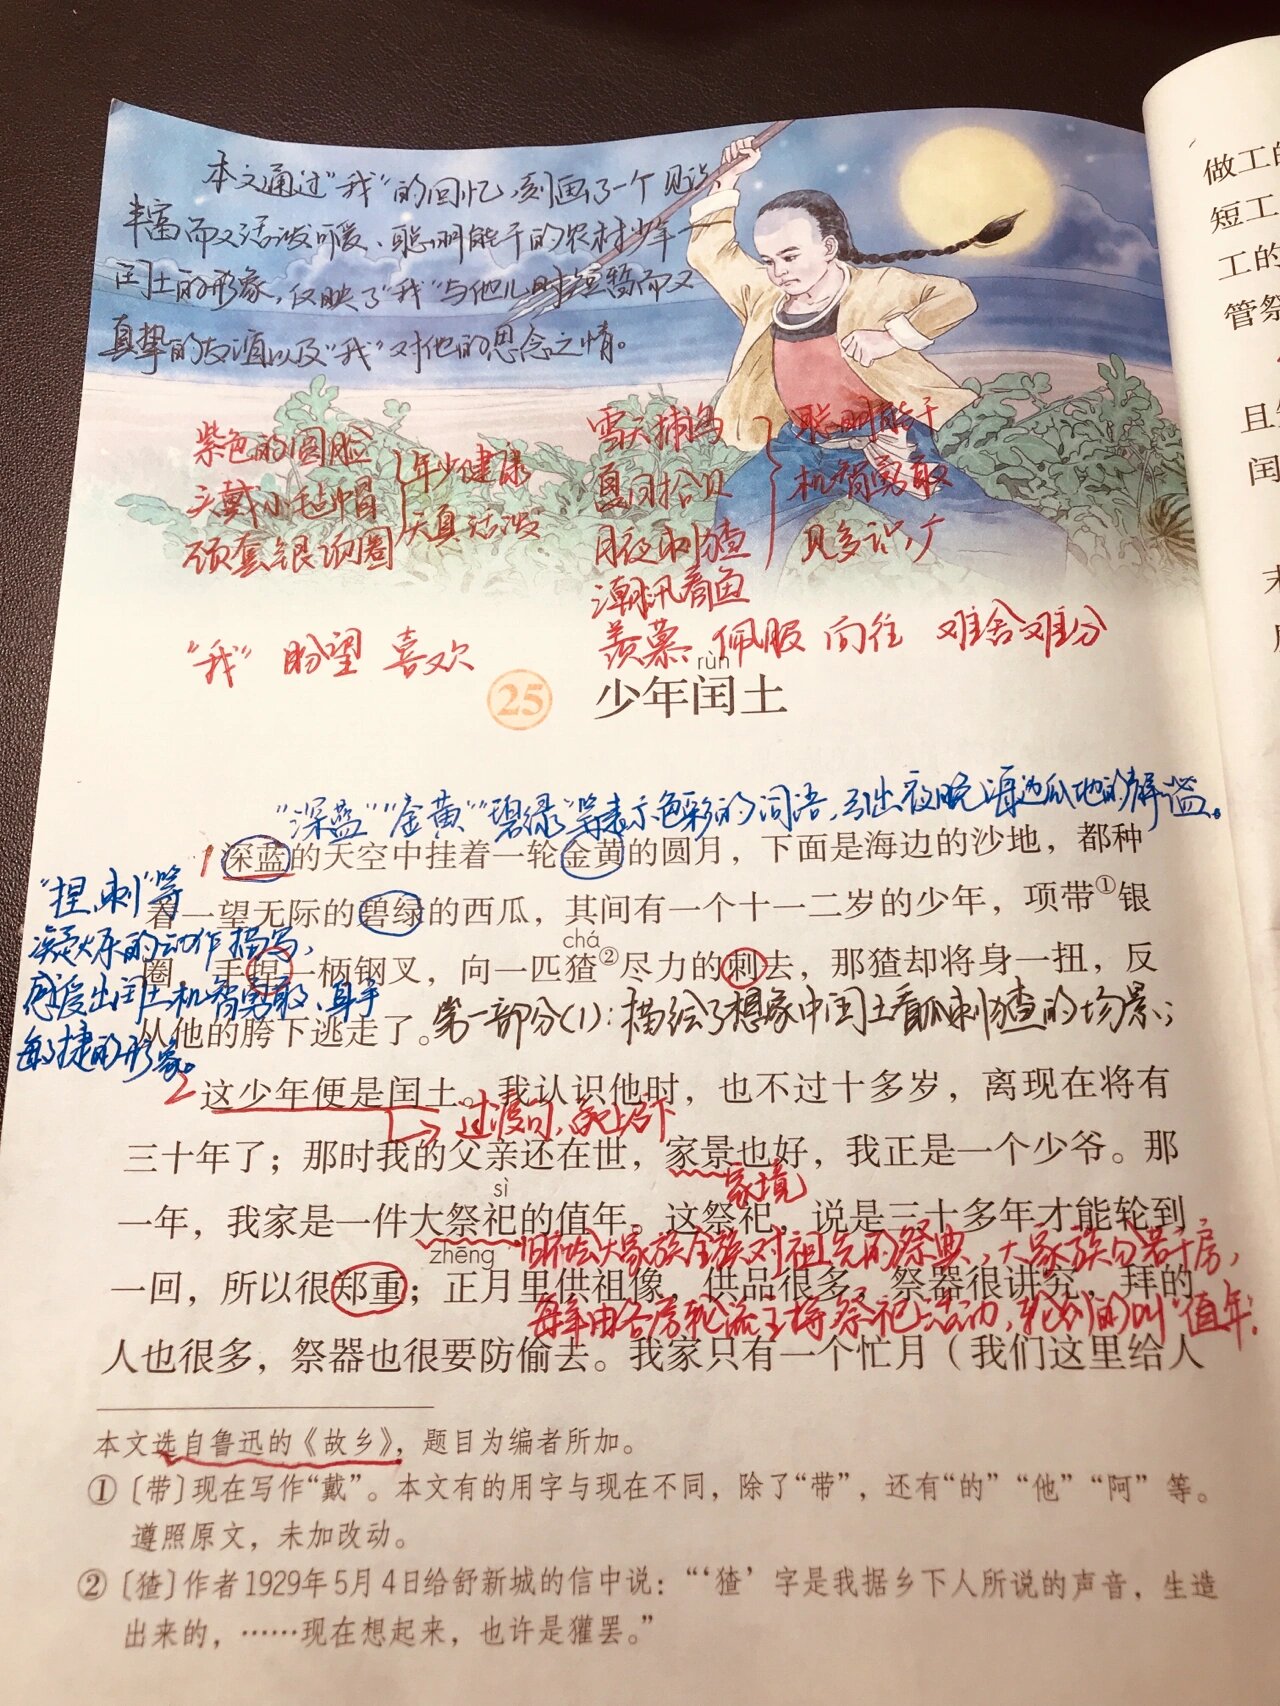 本文通过"我"的回忆,刻画了一个见识
丰富而又活泼可爱、聪明能干的农村少年——
闰土的形象,反映了"我"与他儿时短暂而又
真挚的友谊以及"我"对他的思念之情。
紫色的圆脸
头戴小毡帽
颈套银项圈
年少健康
天真活泼
雪天捕鸟
夏日拾贝
月夜刺猹
潮汛看鱼
聪明能干
机智勇敢
见多识广
"我" 盼望 喜欢
羡慕、佩服 向往 难舍难分
rùn
25 少年闰土
"深蓝""金黄""碧绿"等表示色彩的词语,引出夜晚海边瓜地的静谧。
1 深蓝的天空中挂着一轮金黄的圆月,下面是海边的沙地,都种
着一望无际的碧绿的西瓜,其间有一个十一二岁的少年,项带①银
chá
圈,手捏一柄钢叉,向一匹猹②尽力的刺去,那猹却将身一扭,反
从他的胯下逃走了。
"捏、刺"等
凝炼的动作描写,
感受出闰土机智勇敢、身手
敏捷的形象。
第一部分(1):描绘了想象中闰土看瓜刺猹的场景;
2 这少年便是闰土。我认识他时,也不过十多岁,离现在将有
过渡句,承上启下
三十年了;那时我的父亲还在世,家景也好,我正是一个少爷。那
家境
sì
一年,我家是一件大祭祀的值年。这祭祀,说是三十多年才能轮到
旧社会大家族全族对祖先的祭典,大家族分若干房,
zhēng
一回,所以很郑重;正月里供祖像,供品很多,祭器很讲究,拜的
每年由各房轮流主持祭祀活动,轮到的叫"值年"。
人也很多,祭器也很要防偷去。我家只有一个忙月(我们这里给人
本文选自鲁迅的《故乡》,题目为编者所加。
①〔带〕现在写作“戴”。本文有的用字与现在不同,除了“带”,还有“的”“他”“阿”等。
遵照原文,未加改动。
②〔猹〕作者1929年5月4日给舒新城的信中说:“‘猹’字是我据乡下人所说的声音,生造
出来的,……现在想起来,也许是獾罢。”
做工的
短工
工的
管祭
且
闰